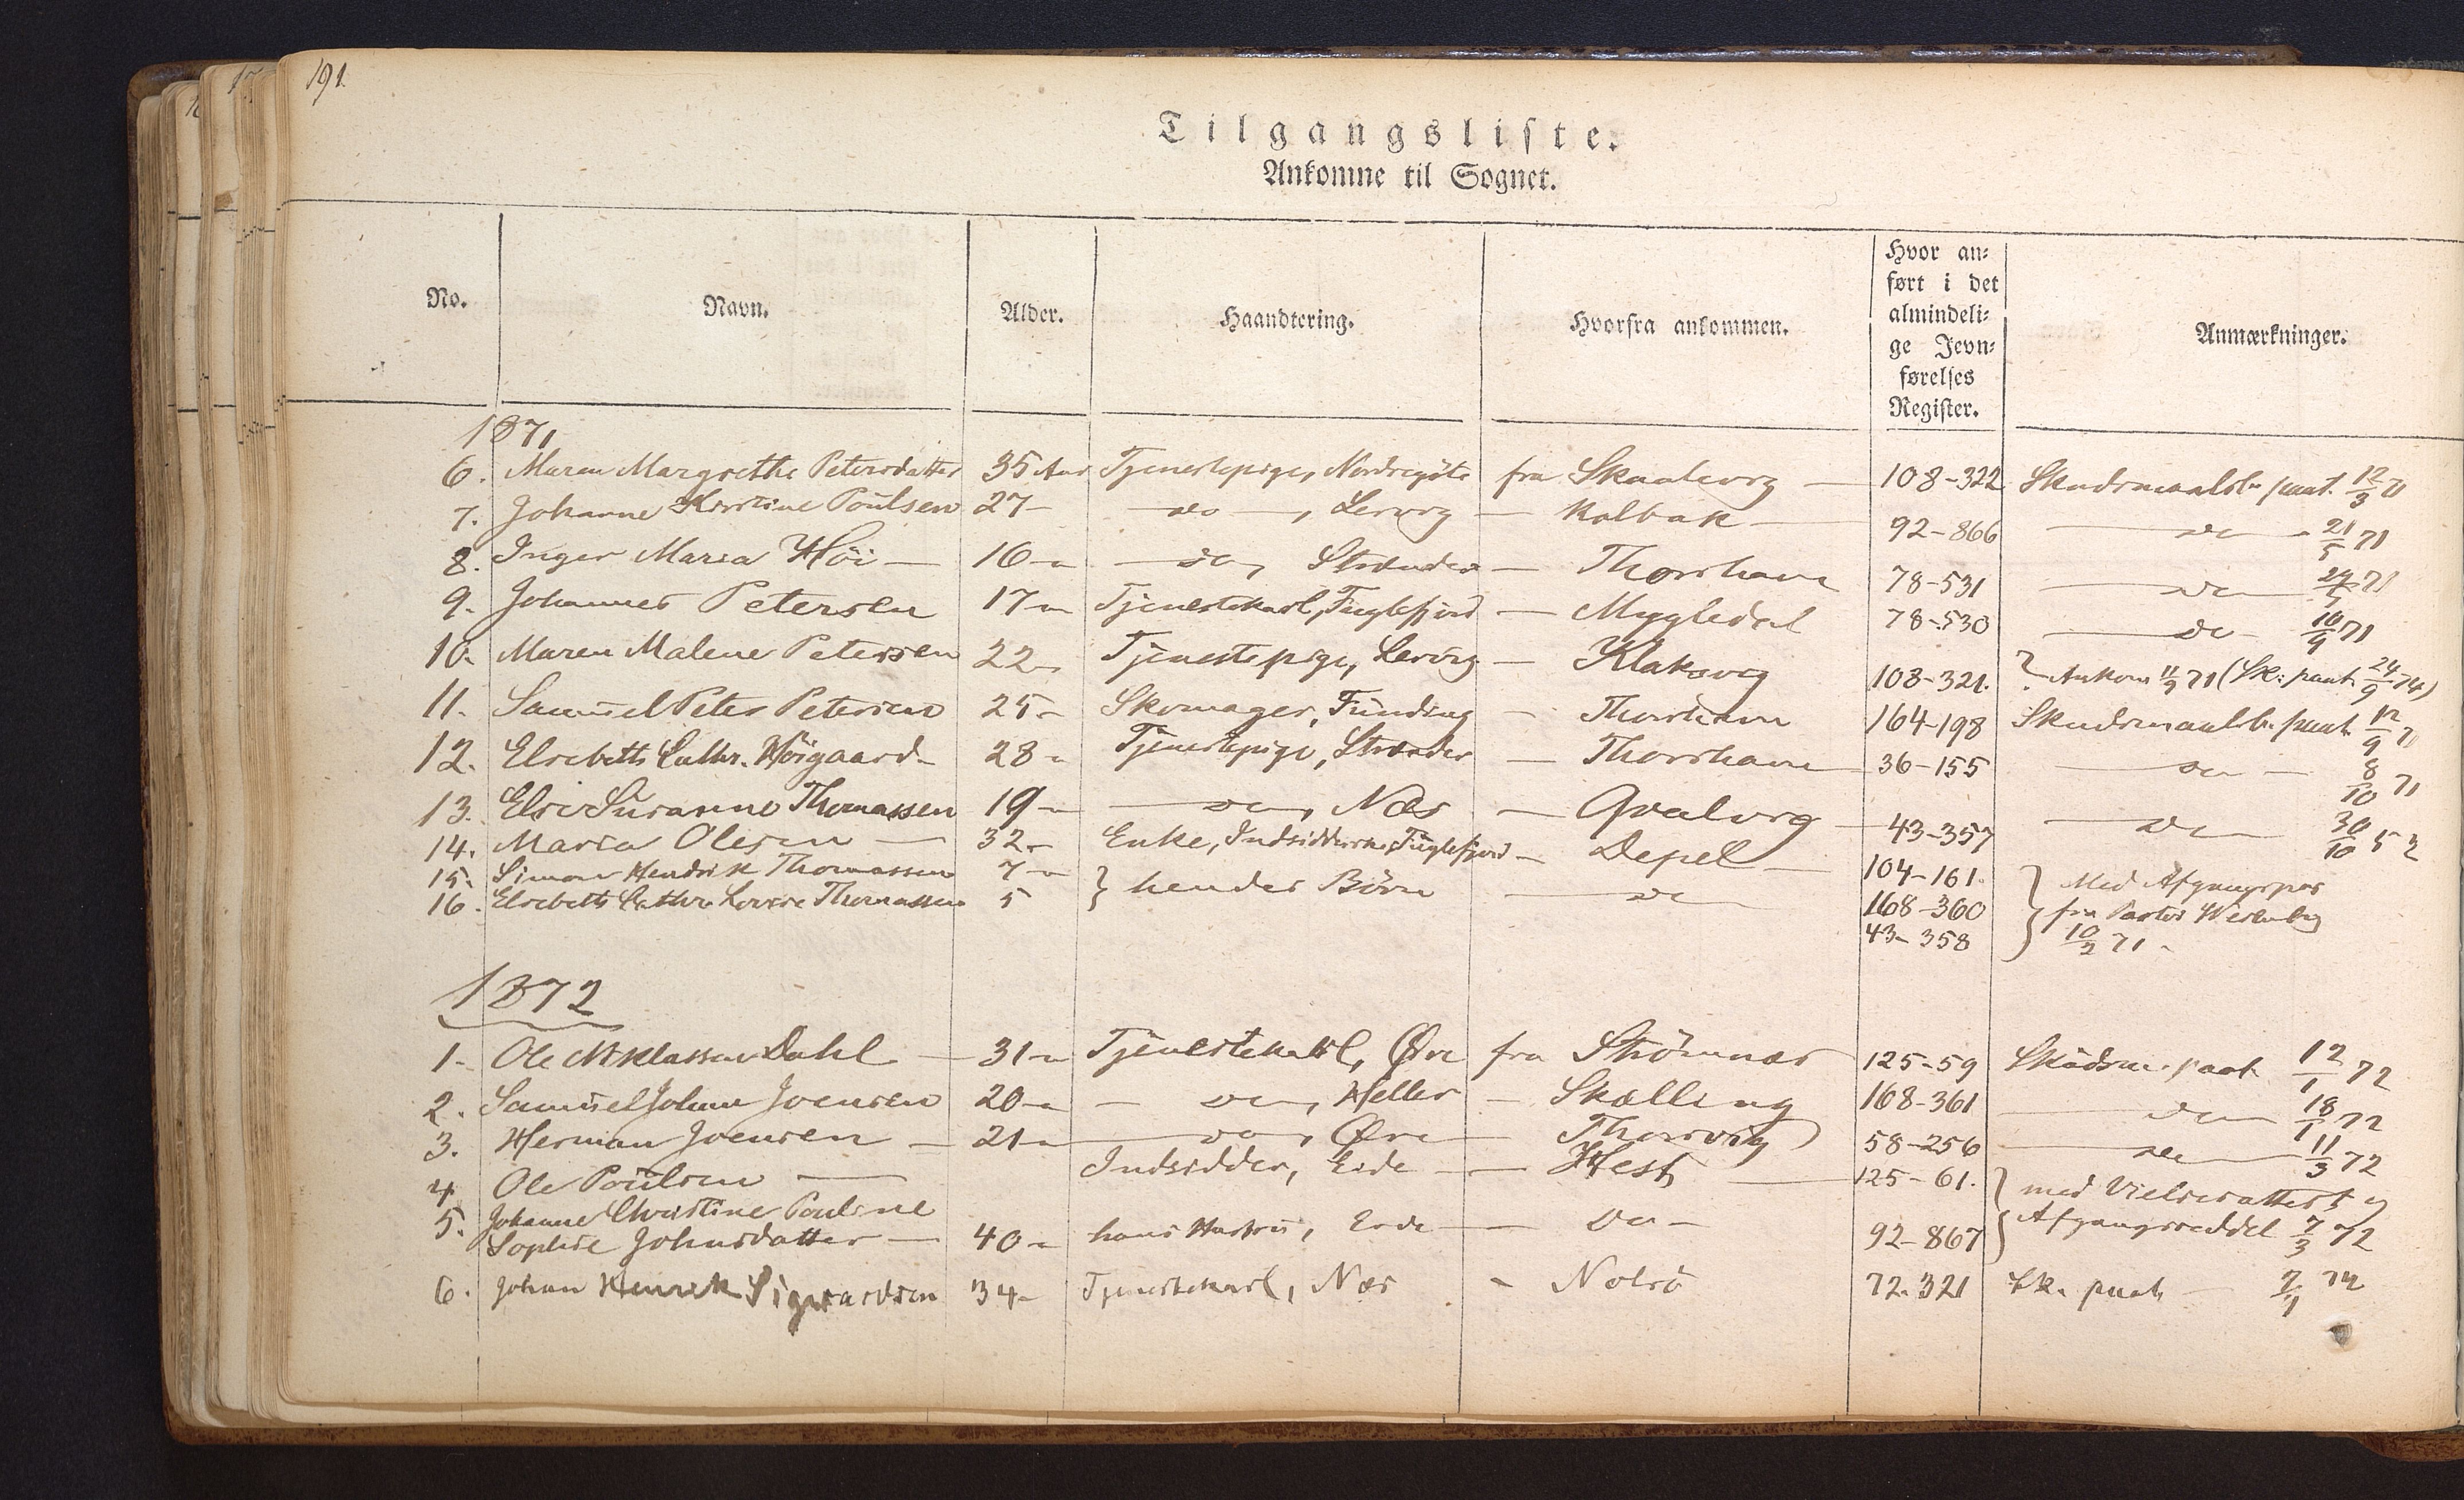 191.
Tilgangsliste.
Ankomne til Sognet.
No. Navn. Alder. Haandtering. Hvorfra ankommen. Hvor an- ført i det almindeli- ge Jevn- førelses Register. Anmærkninger.
1871
6. Maren Margrethe Petersdatter 35 Aar Tjenestepige, Nordregöte fra Skaalevig — 108-322 Skudsmaalsb. paat. 12/3 71
7. Johanne Kirstine Poulsen 27 — do —, Lervig — Kalbak — 92-866 — do — 21/5 71
8. Inger Maria Höi — 16 — do, Strænder — Thorshavn 78-531 — do —
9. Johannes Petersen 17 Tjenestekarl, Fuglefjord — Mygledal 78-530 — do — 10/9 71
10. Maren Malene Petersen 22 Tjenestepige, Lervig — Klaksvig 108-321. Ankom 11/9 71 (Sk: paat. 24/9 74)
11. Samuel Peter Petersen 25 Skomager, Funding — Thorshavn 164-198 Skudsmaalsb. paat. 12/9 71
12. Elsebeth Cathr. Höigaard 28 Tjenestepige, Strænder — Thorshavn 36-155 — do — 8/10 71
13. Else Susanne Thomassen 19 — do, Næs — Qvalvig — 43-357 — do — 30/10 52
14. Maria Olesen — 32 Enke, Indsidderske, Fuglefjord — Depel — 104-161.
15. Simon Hendrik Thomassen 7 } hendes Börn — do — 168-360 } Med Afgangspas
16. Elsebeth Cathr. Lovise Thomassen 5 43-358 fra Pastor
10/2 71
1872
1. Ole Niklassen Dahl — 31 Tjenestekarl, Öre fra Strömnæs 125-59 Skudsm. paat. 12/1 72
2. Samuel Johan Joensen 20 — do, Heller — Skælling 168-361 — do — 18/1 72
3. Herman Joensen — 21 — do, Öre — Thorsvig 58-256 — do — 11/3 72
4. Ole Poulsen — Indsidder, Eide — Hest — 125-61. } med Vielsesattest og
5. Johanne Christine Pouline
Sophie Johnsdatter — 40 hans Hustru, Eide — do — 92-867 Afgangsseddel 7/3 72
6. Johan Henrik Sigvardsen 34 Tjenestekarl, Næs — Nolsö 72-321 Sk. paat —